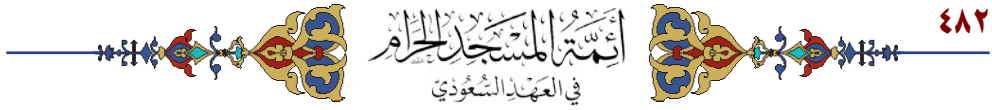 ٤٨٢
أَئِمَّةُ المَسْجِدِ الحَرَامِ
فِي العَهْدِ السُّعُودِيّ